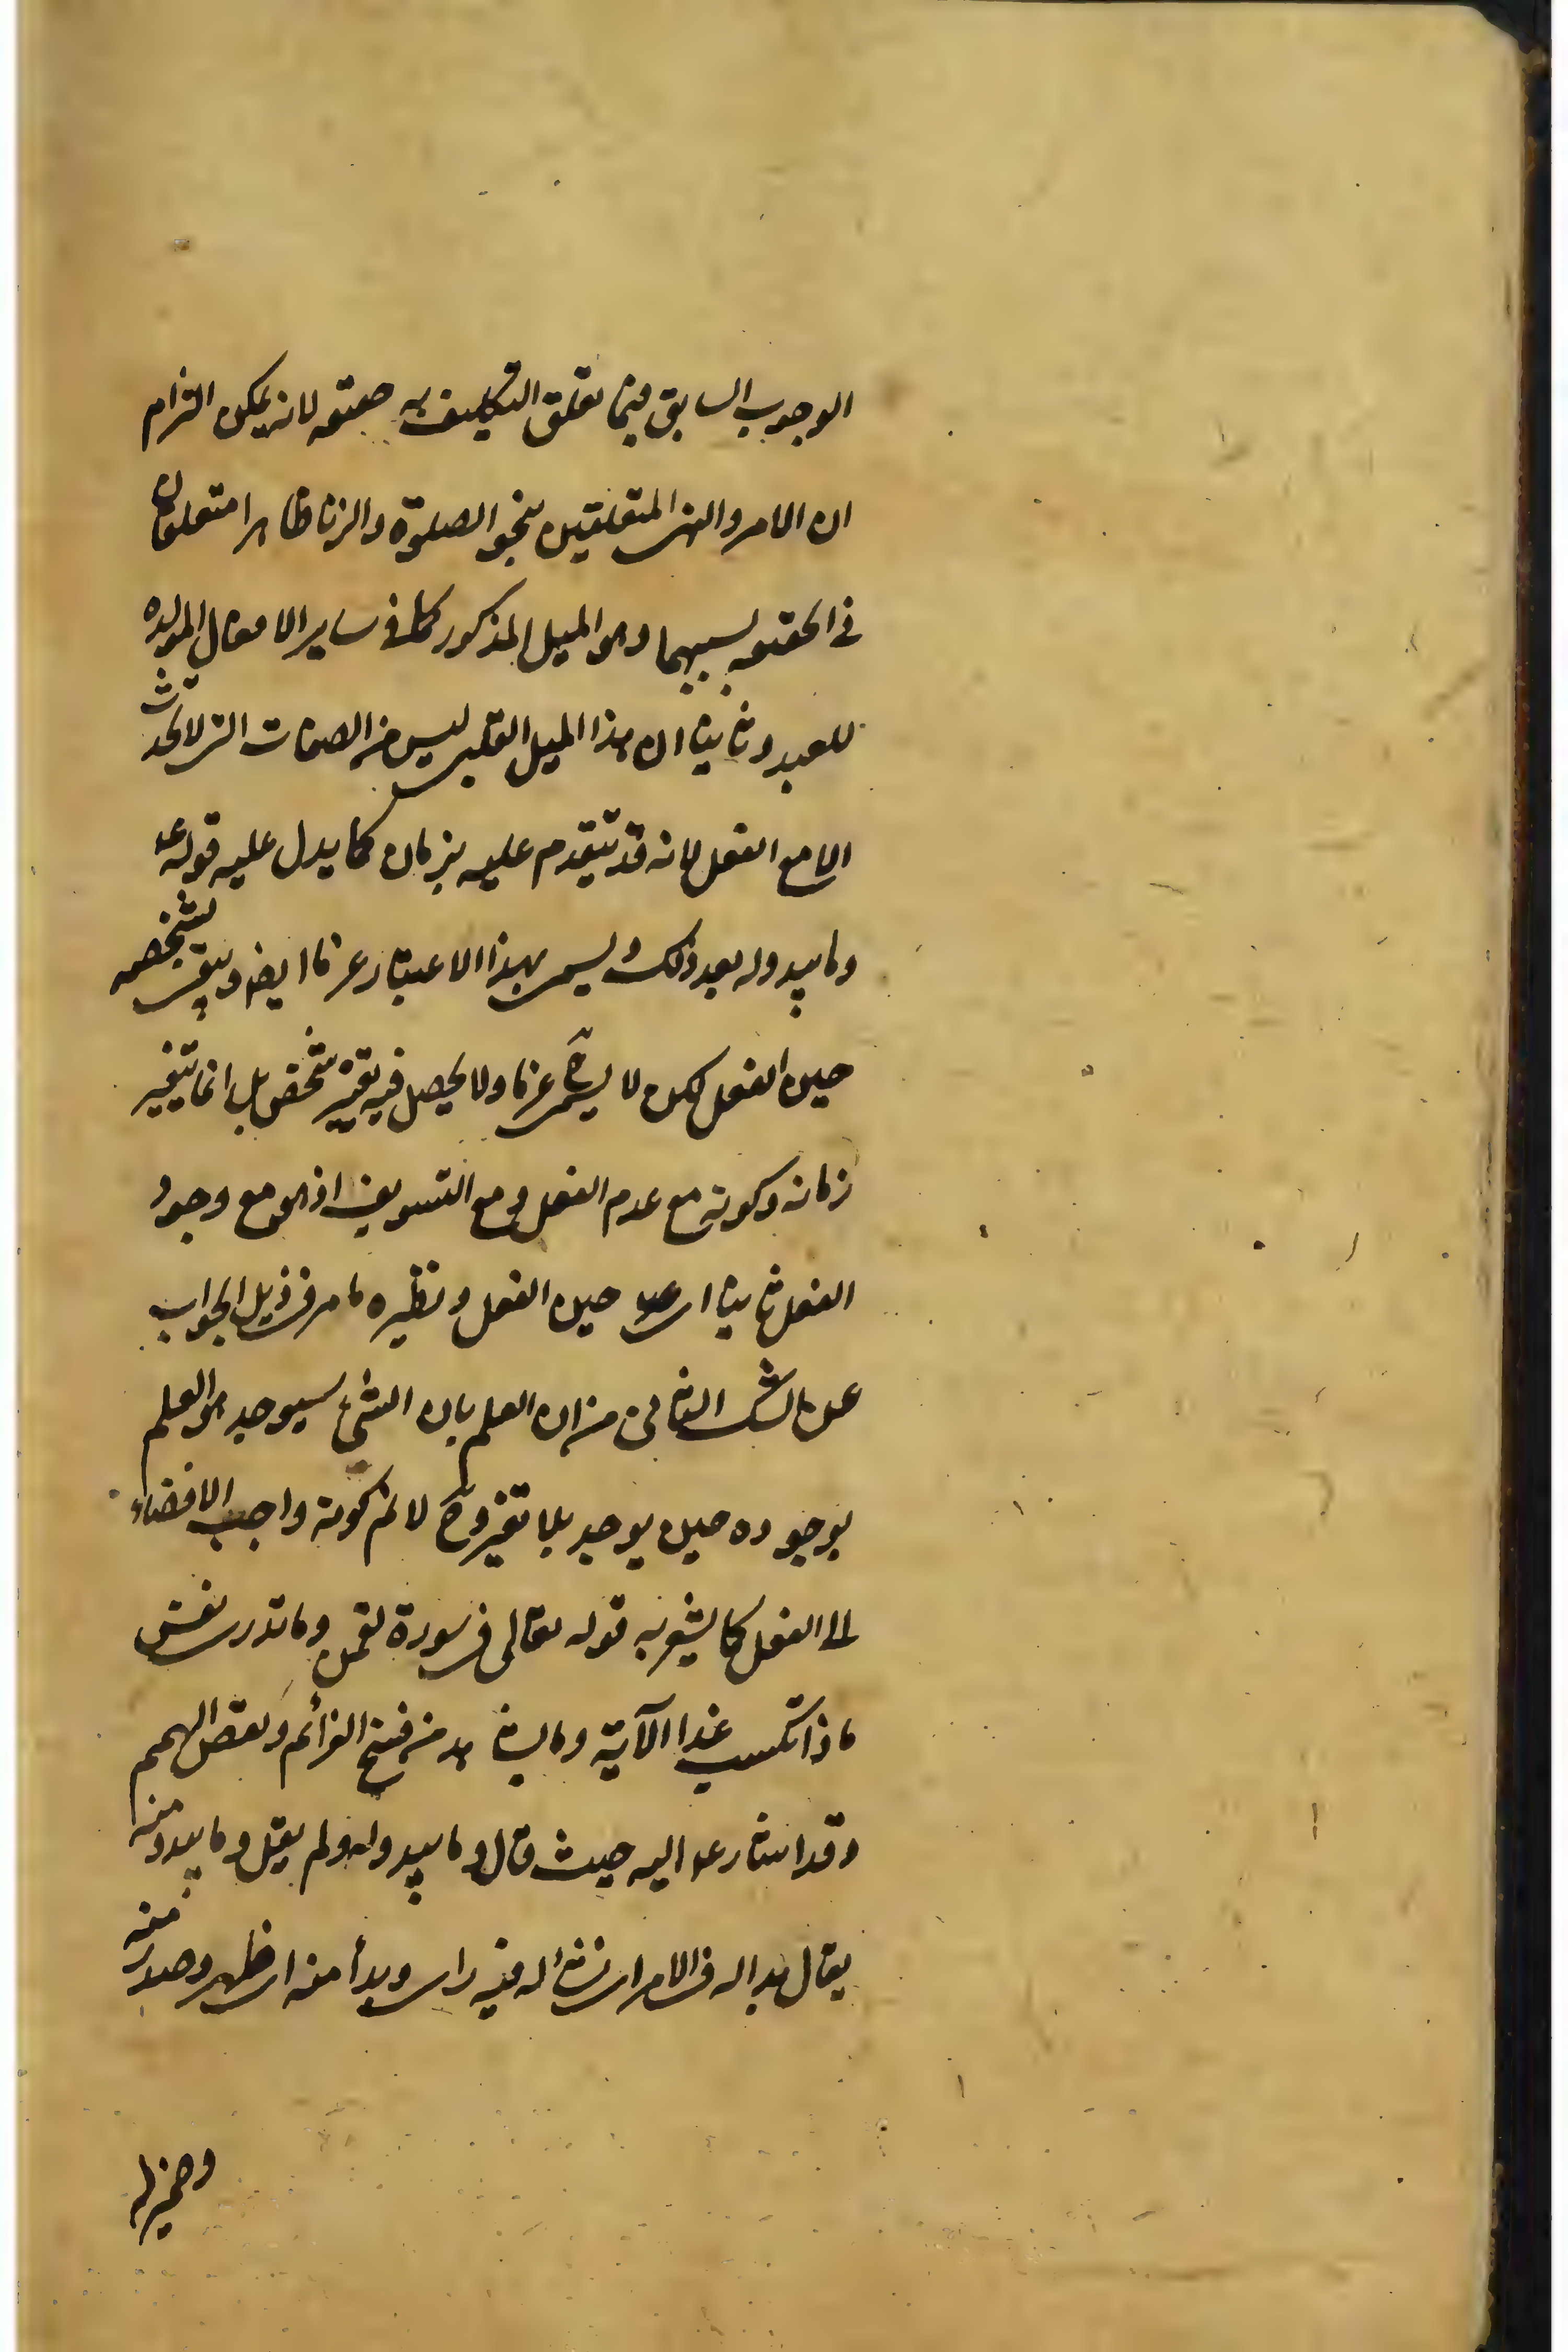 الوجوب السابق فيما تعلق التكليف به حقيقة لانه يمكن التزام
ان الامر والنهى المتعلقين بنحو الصلوة والزنا ظاهرا متعلقان
فى الحقيقة بسببهما وهو الميل المذكور كما فى ساير الافعال المولدة
للعبد وثانيا ان هذا الميل القلبى ليس من الصفات التى لا تحدث
الا مع الفعل لانه قد يتقدم عليه بزمان كما يدل عليه قوله ع
وما يبدو له بعد ذلك ويسمى بهذا الاعتبار عزما ايضا ويبقى بشخصه
حين الفعل لكن لا يسمى ح عزما ولا يحصل فيه تغير شخص بل انما يتغير
زمانه وكونه مع عدم الفعل ومع التسويف اذ هو مع وجود
الفعل ثانيا اى حين الفعل ونظيره ما مر فى ذيل الجواب
عن الشك الثانى من ان العلم بان الشئ سيوجد هو العلم
بوجوده حين يوجد بلا تغير وح لا نم كونه واجب الافضاء
الى الفعل كما يشعر به قوله تعالى فى سورة لقمن وما تدرى نفس
ماذا تكسب غدا الآية وما من فسخ العزائم ونقض الهمم
وقد اشار ع اليه حيث قال وما يبدو له ولم يقل وما يبدو منه
يقال بدا له فى الامر اى نشأ له فيه راى وبدأ منه اى ظهر وصدر منه
وضمير له